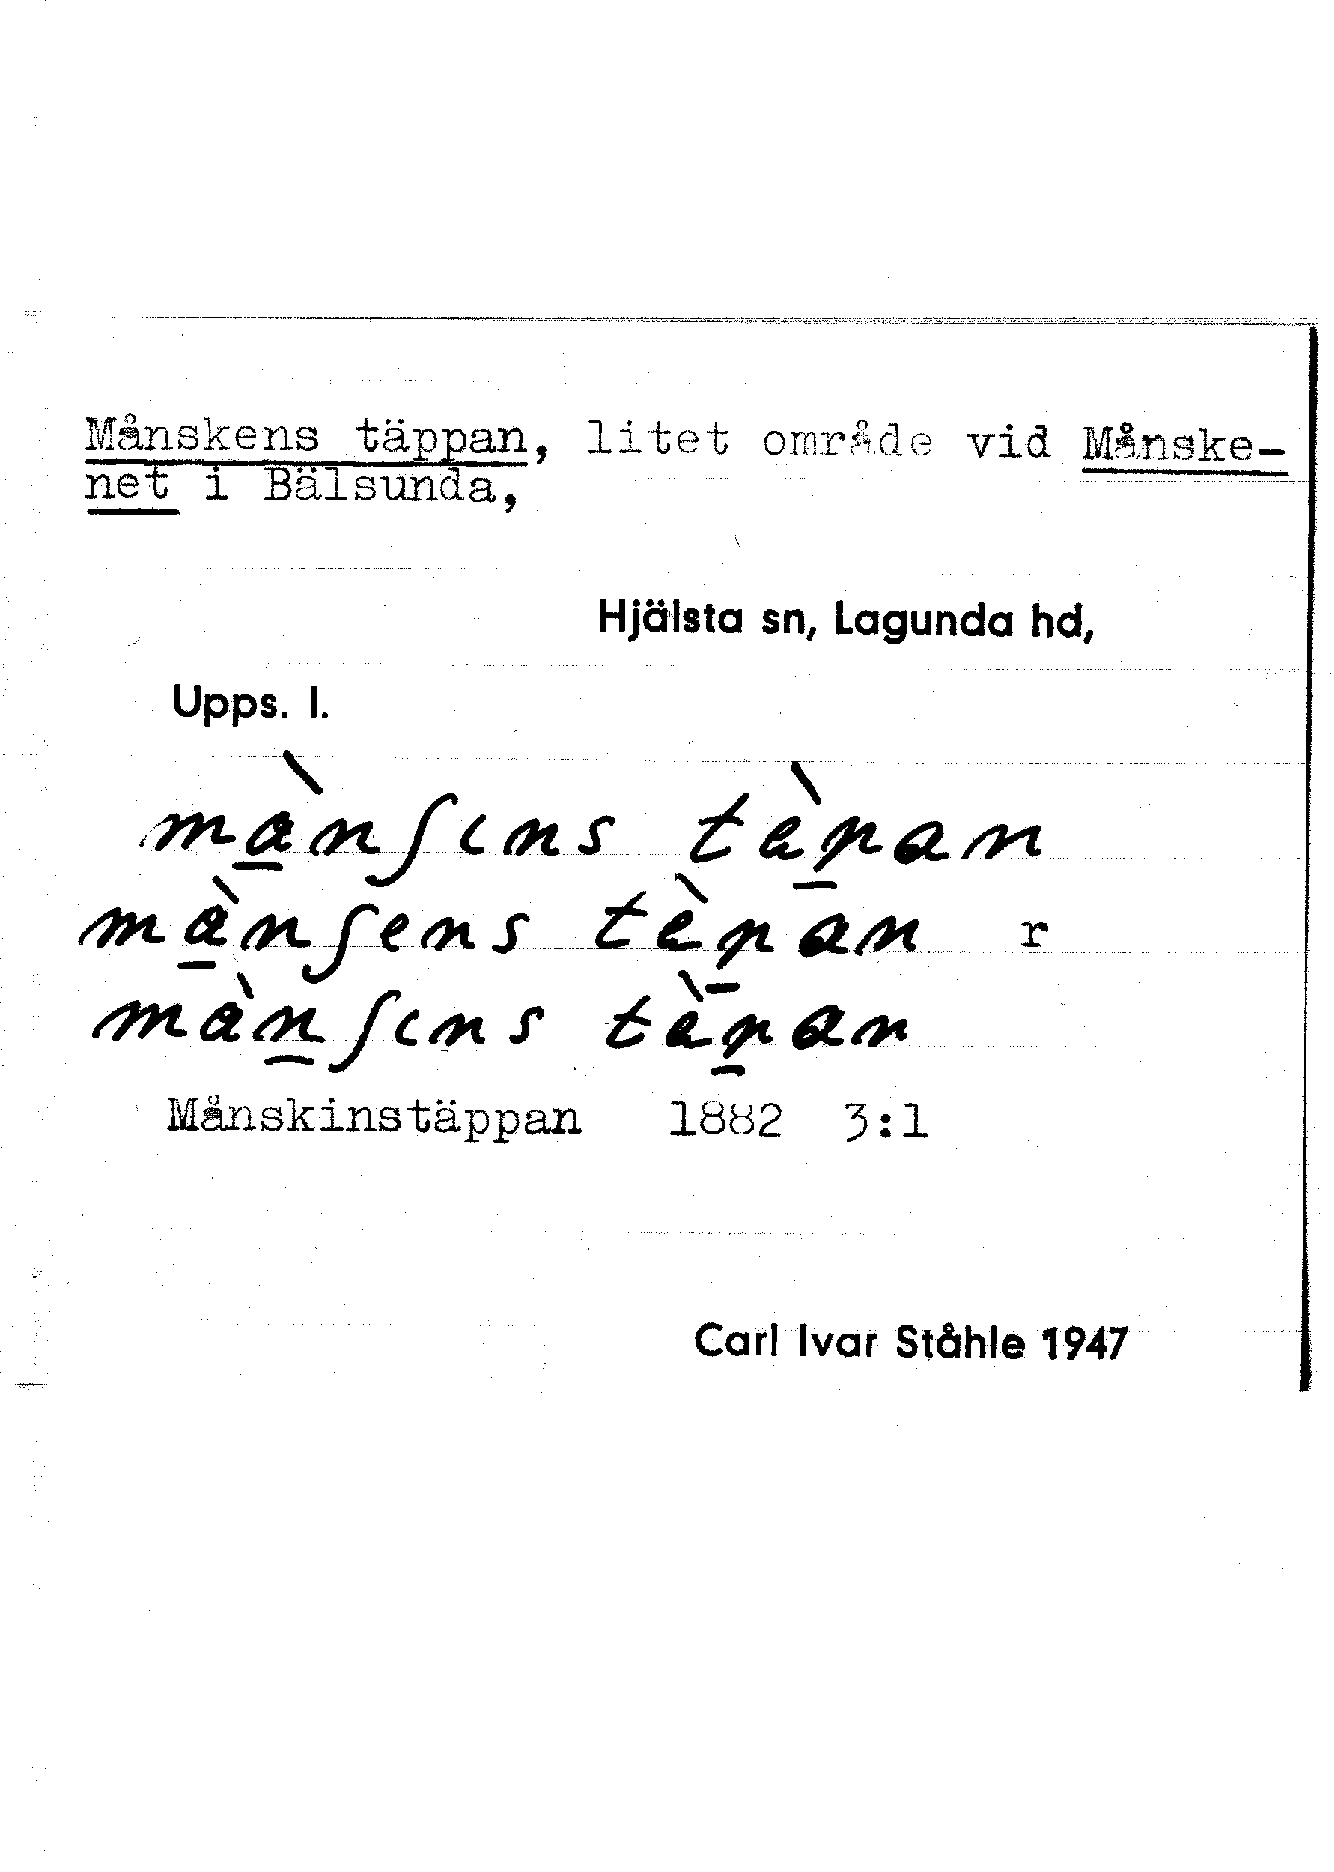 Månskens täppan, litet område vid Månske-
net i Bälsunda,
Hjälsta sn, Lagunda hd,
Upps. l.
mànʃıns tèpan
mànʃens tèpan r
mànʃıns tèpan
Månskinstäppan 1882 3:1
Carl Ivar Ståhle 1947